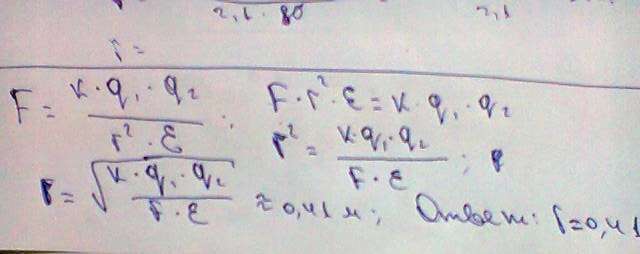 2,1 · 80 2,1
r =
F = k · q₁ · q₂ / r² · ε ; F · r² · ε = k · q₁ · q₂
r² = k · q₁ · q₂ / F · ε ;
r = √(k · q₁ · q₂ / F · ε) ≈ 0,41 м; Ответ: r = 0,41